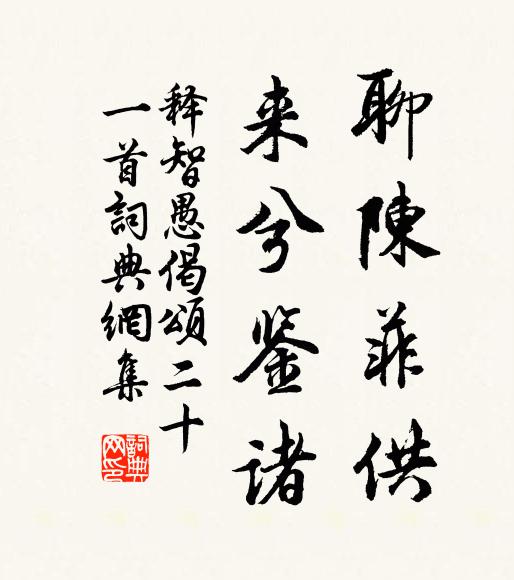 聊陳菲供
来兮鉴诸
释智愚偈頌二十
一首詞典網集
詞典网印